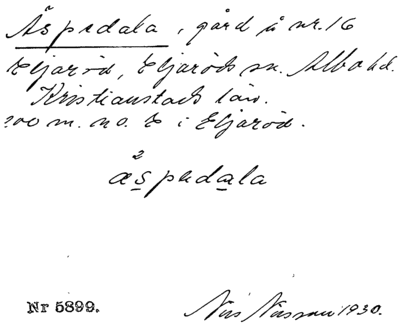 Äspedala, gård å nr. 16
Eljaröd, Eljaröds sn. Albo hd.
Kristianstads län.
200 m. no. E i Eljaröd.
2
äspedala
Nr 5899. Nils Nilsson 1930.